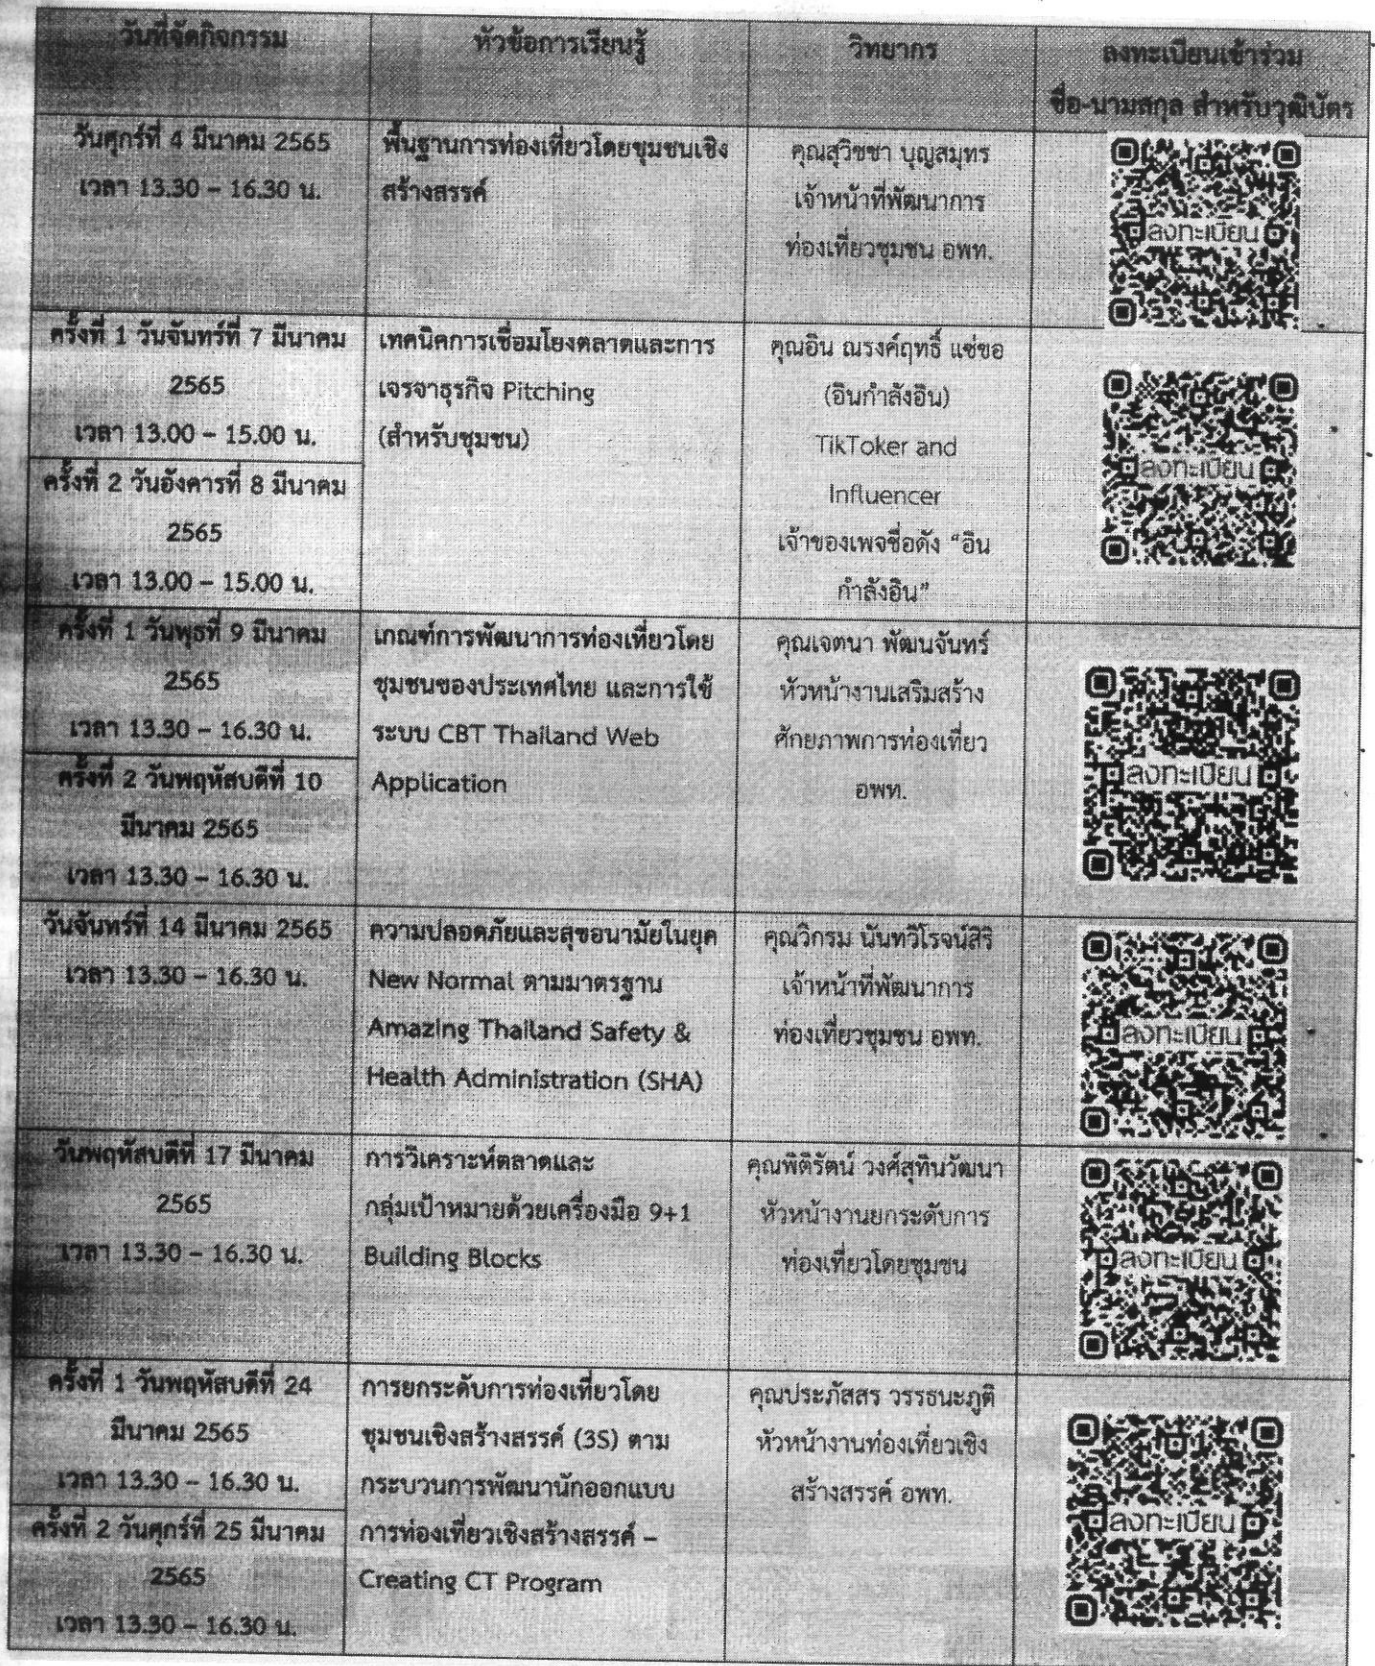 วันที่จัดกิจกรรม
หัวข้อการเรียนรู้
วิทยากร
ลงทะเบียนเข้าร่วม
ชื่อ-นามสกุล สำหรับวุฒิบัตร
วันศุกร์ที่ 4 มีนาคม 2565
เวลา 13.30 – 16.30 น.
พื้นฐานการท่องเที่ยวโดยชุมชนเชิง
สร้างสรรค์
คุณสุวิชชา บุญสมุทร
เจ้าหน้าที่พัฒนาการ
ท่องเที่ยวชุมชน อพท.
ลงทะเบียน
ครั้งที่ 1 วันจันทร์ที่ 7 มีนาคม
2565
เวลา 13.00 – 15.00 น.
ครั้งที่ 2 วันอังคารที่ 8 มีนาคม
2565
เวลา 13.00 – 15.00 น.
เทคนิคการเชื่อมโยงตลาดและการ
เจรจาธุรกิจ Pitching
(สำหรับชุมชน)
คุณอิน ณรงค์ฤทธิ์ แซ่ขอ
(อินกำลังอิน)
TikToker and
Influencer
เจ้าของเพจชื่อดัง “อิน
กำลังอิน”
ลงทะเบียน
ครั้งที่ 1 วันพุธที่ 9 มีนาคม
2565
เวลา 13.30 – 16.30 น.
ครั้งที่ 2 วันพฤหัสบดีที่ 10
มีนาคม 2565
เวลา 13.30 – 16.30 น.
เกณฑ์การพัฒนาการท่องเที่ยวโดย
ชุมชนของประเทศไทย และการใช้
ระบบ CBT Thailand Web
Application
คุณเจตนา พัฒนจันทร์
หัวหน้างานเสริมสร้าง
ศักยภาพการท่องเที่ยว
อพท.
ลงทะเบียน
วันจันทร์ที่ 14 มีนาคม 2565
เวลา 13.30 – 16.30 น.
ความปลอดภัยและสุขอนามัยในยุค
New Normal ตามมาตรฐาน
Amazing Thailand Safety &
Health Administration (SHA)
คุณวิกรม นันทวิโรจน์สิริ
เจ้าหน้าที่พัฒนาการ
ท่องเที่ยวชุมชน อพท.
ลงทะเบียน
วันพฤหัสบดีที่ 17 มีนาคม
2565
เวลา 13.30 – 16.30 น.
การวิเคราะห์ตลาดและ
กลุ่มเป้าหมายด้วยเครื่องมือ 9+1
Building Blocks
คุณพิติรัตน์ วงศ์สุทินวัฒนา
หัวหน้างานยกระดับการ
ท่องเที่ยวโดยชุมชน
ลงทะเบียน
ครั้งที่ 1 วันพฤหัสบดีที่ 24
มีนาคม 2565
เวลา 13.30 – 16.30 น.
ครั้งที่ 2 วันศุกร์ที่ 25 มีนาคม
2565
เวลา 13.30 – 16.30 น.
การยกระดับการท่องเที่ยวโดย
ชุมชนเชิงสร้างสรรค์ (3S) ตาม
กระบวนการพัฒนานักออกแบบ
การท่องเที่ยวเชิงสร้างสรรค์ –
Creating CT Program
คุณประภัสสร วรรธนะภูติ
หัวหน้างานท่องเที่ยวเชิง
สร้างสรรค์ อพท.
ลงทะเบียน